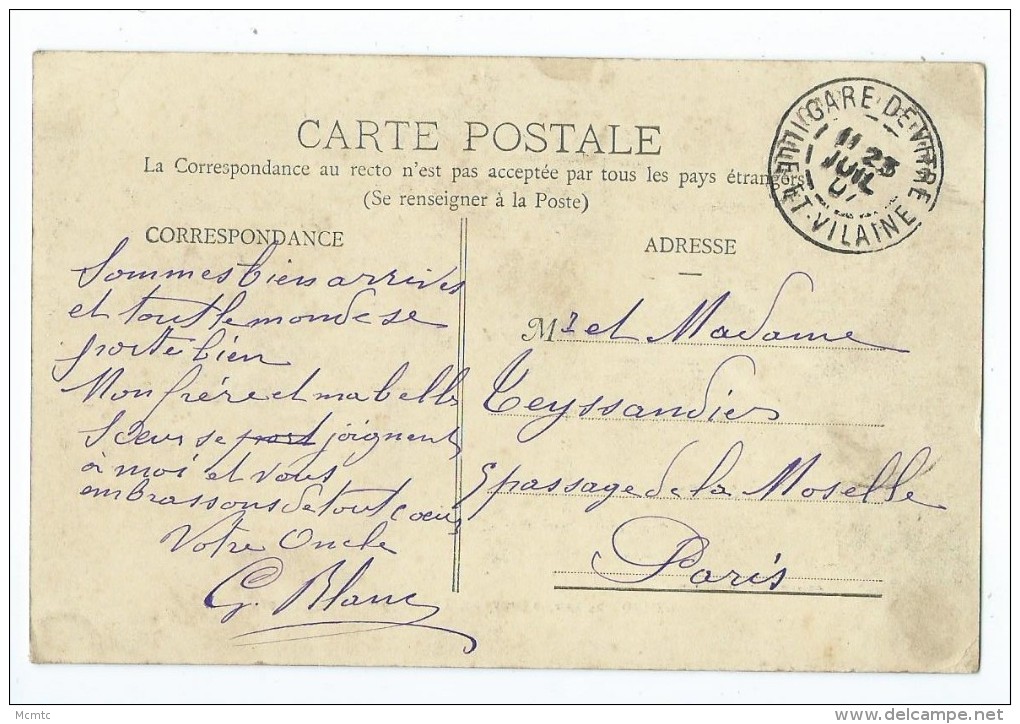 CARTE POSTALE
La Correspondance au recto n'est pas acceptée par tous les pays étrangers
(Se renseigner à la Poste)
GARE DE VITRÉ
11 23
JUIL
ILLE-ET-VILAINE
CORRESPONDANCE
Sommes bien arrivés
et tout le monde se
porte bien
Mon frère et ma belle
Sœur se joignent
à moi et vous
embrassons de tout cœur
Votre Oncle
G. Blanc
ADRESSE
Mr et Madame
Teyssandier
5 passage de la Moselle
Paris
Mcmtc
http://www.delcampe.net